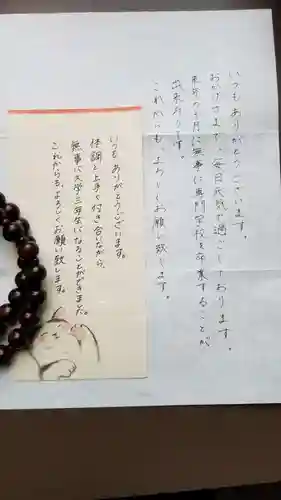 いつもありがとうございます。
おかげさまで、毎日元気で過ごしております。
来年の3月に無事に専門学校を卒業することが
出来ます。
これからも、よろしくお願い致します。
いつも ありがとうございます。
体調と上手く付き合いながら、
無事に大学三年生になることができました。
これからも、よろしくお願い致します。